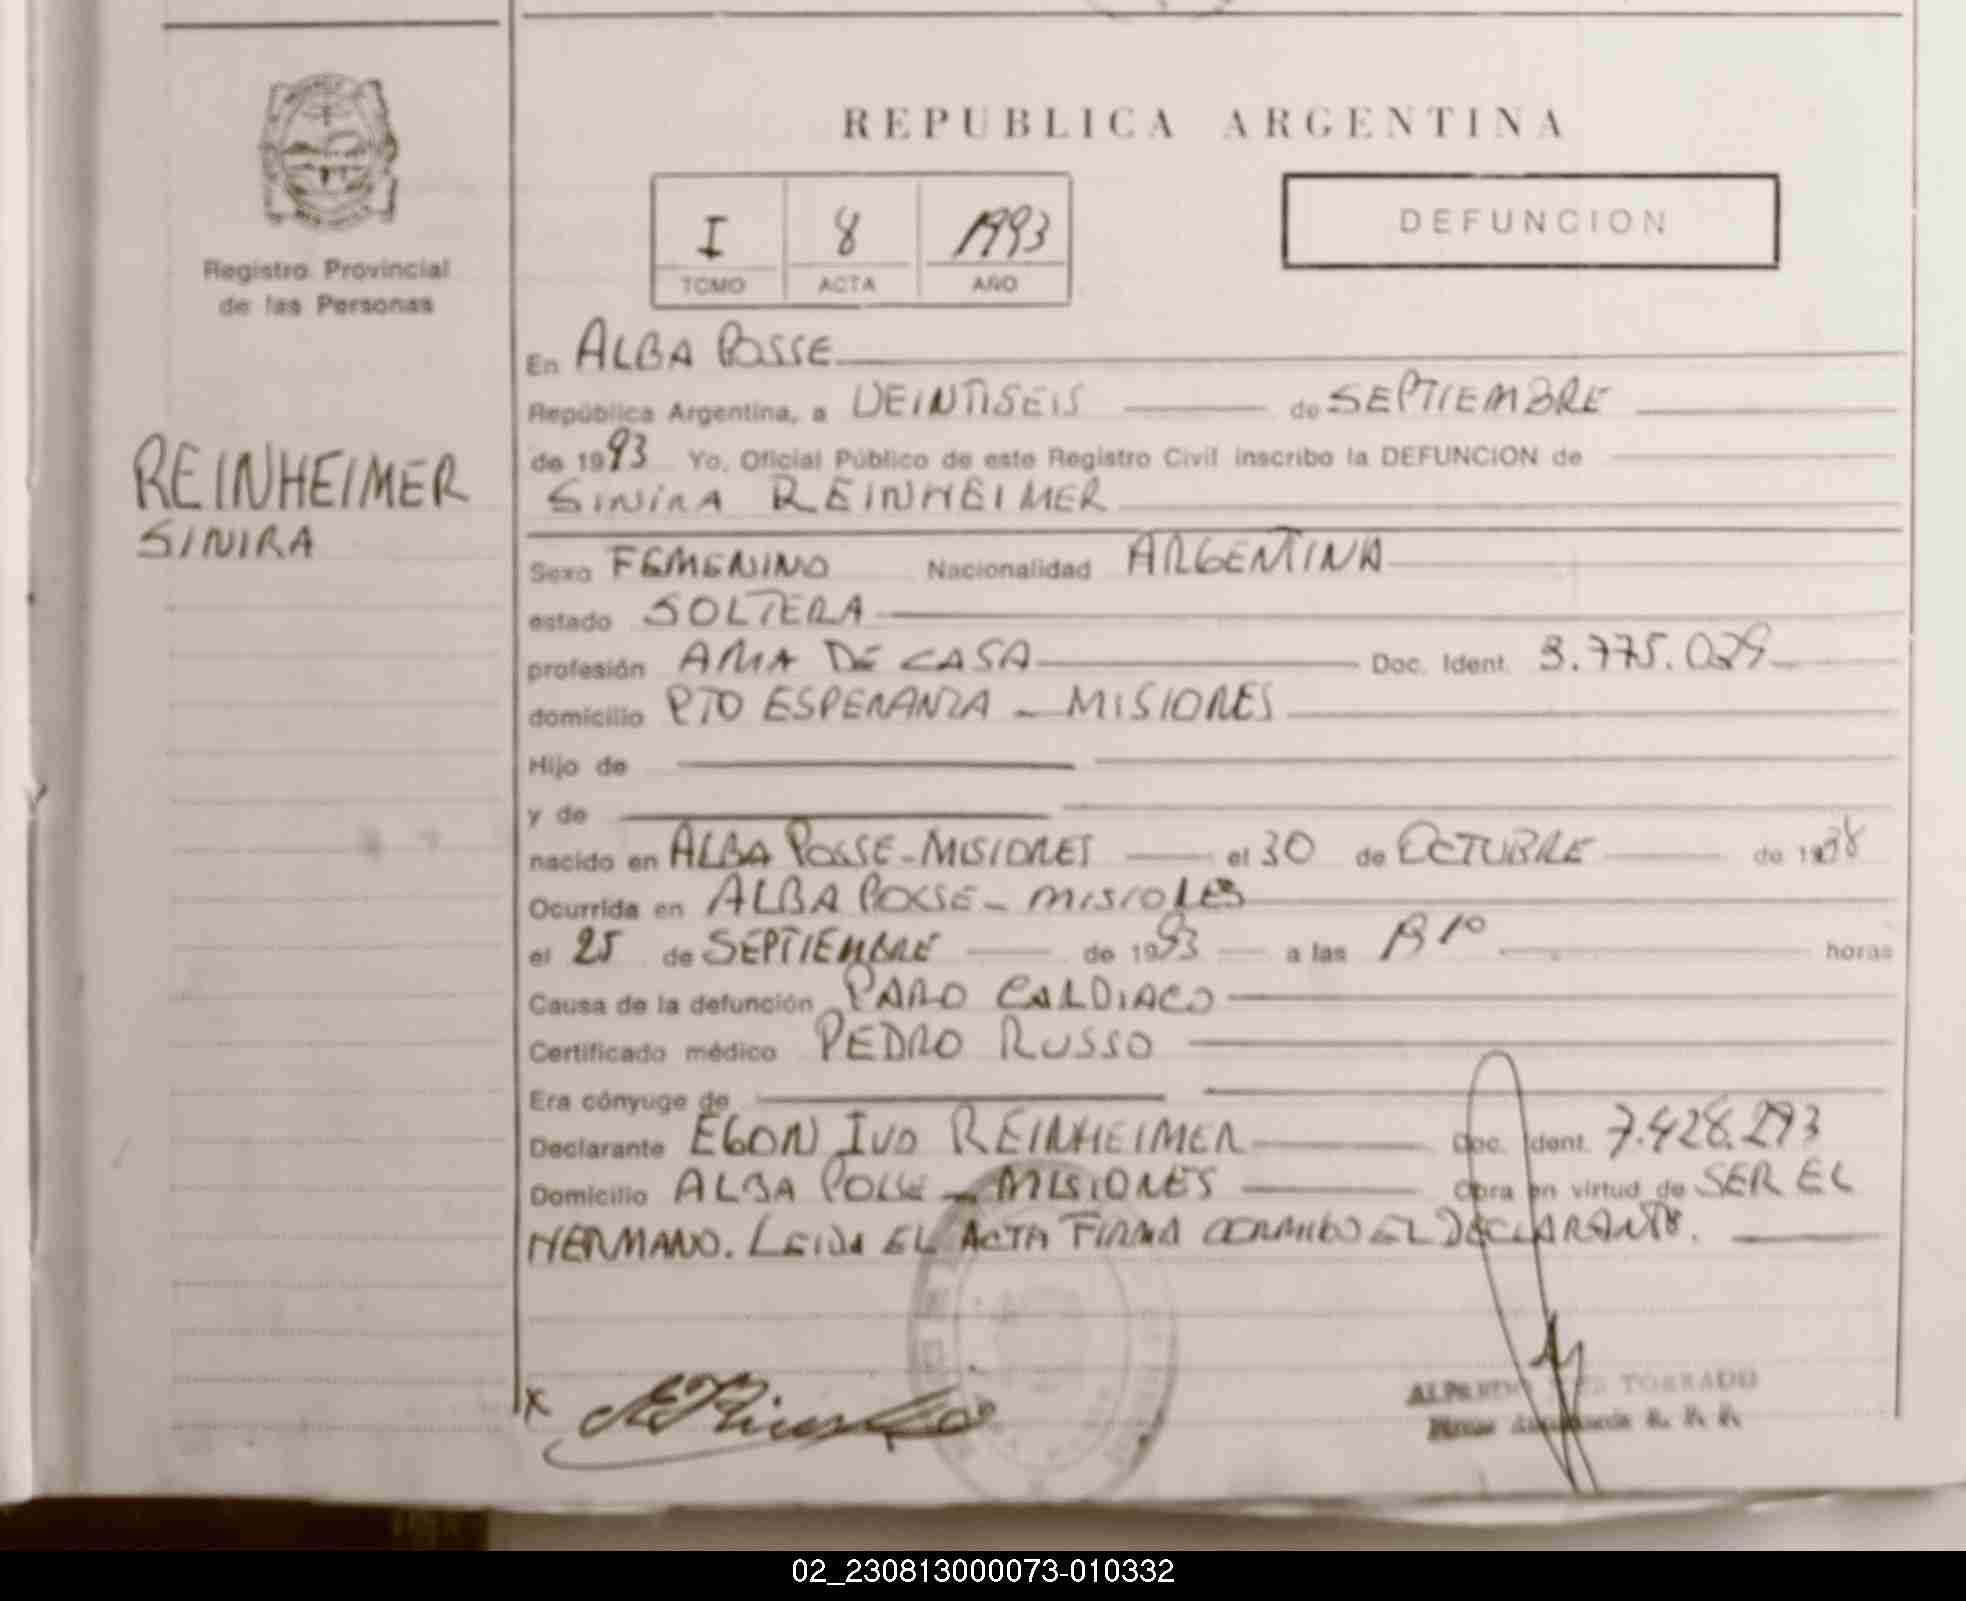 REPUBLICA ARGENTINA
Registro Provincial
de las Personas
I 8 1993
TOMO ACTA AÑO
DEFUNCION
REINHEIMER
SINIRA
En ALBA POSSE
República Argentina, a VEINTISEIS de SEPTIEMBRE
de 1993 Yo, Oficial Público de este Registro Civil inscribo la DEFUNCION de
SINIRA REINHEIMER
Sexo FEMENINO Nacionalidad ARGENTINA
estado SOLTERA
profesión AMA DE CASA Doc. Ident. 3.775.029
domicilio PTO ESPERANZA - MISIONES
Hijo de
y de
nacido en ALBA POSSE - MISIONES el 30 de OCTUBRE de 1938
Ocurrida en ALBA POSSE - MISIONES
el 25 de SEPTIEMBRE de 1993 a las horas
Causa de la defunción PARO CARDIACO
Certificado médico PEDRO RUSSO
Era cónyuge de
Declarante EGON IVO REINHEIMER Doc. Ident. 7.428.293
Domicilio ALBA POSSE - MISIONES Obra en virtud de SER EL
HERMANO. LEIDA EL ACTA FIRMA CONMIGO EL DECLARANTE.
X
TORRADO
02_230813000073-010332